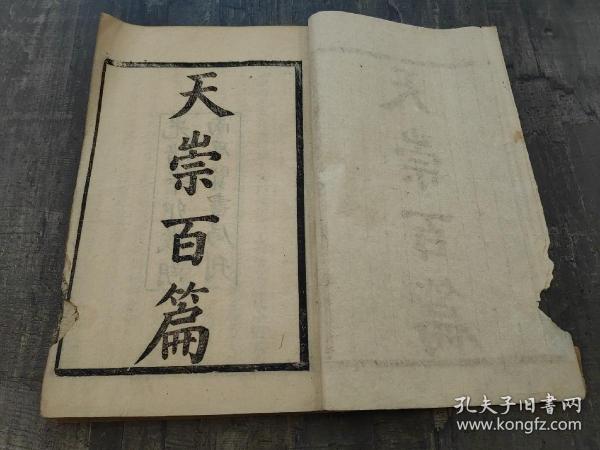 天崇百篇
孔夫子旧書网
www.kongfz.com